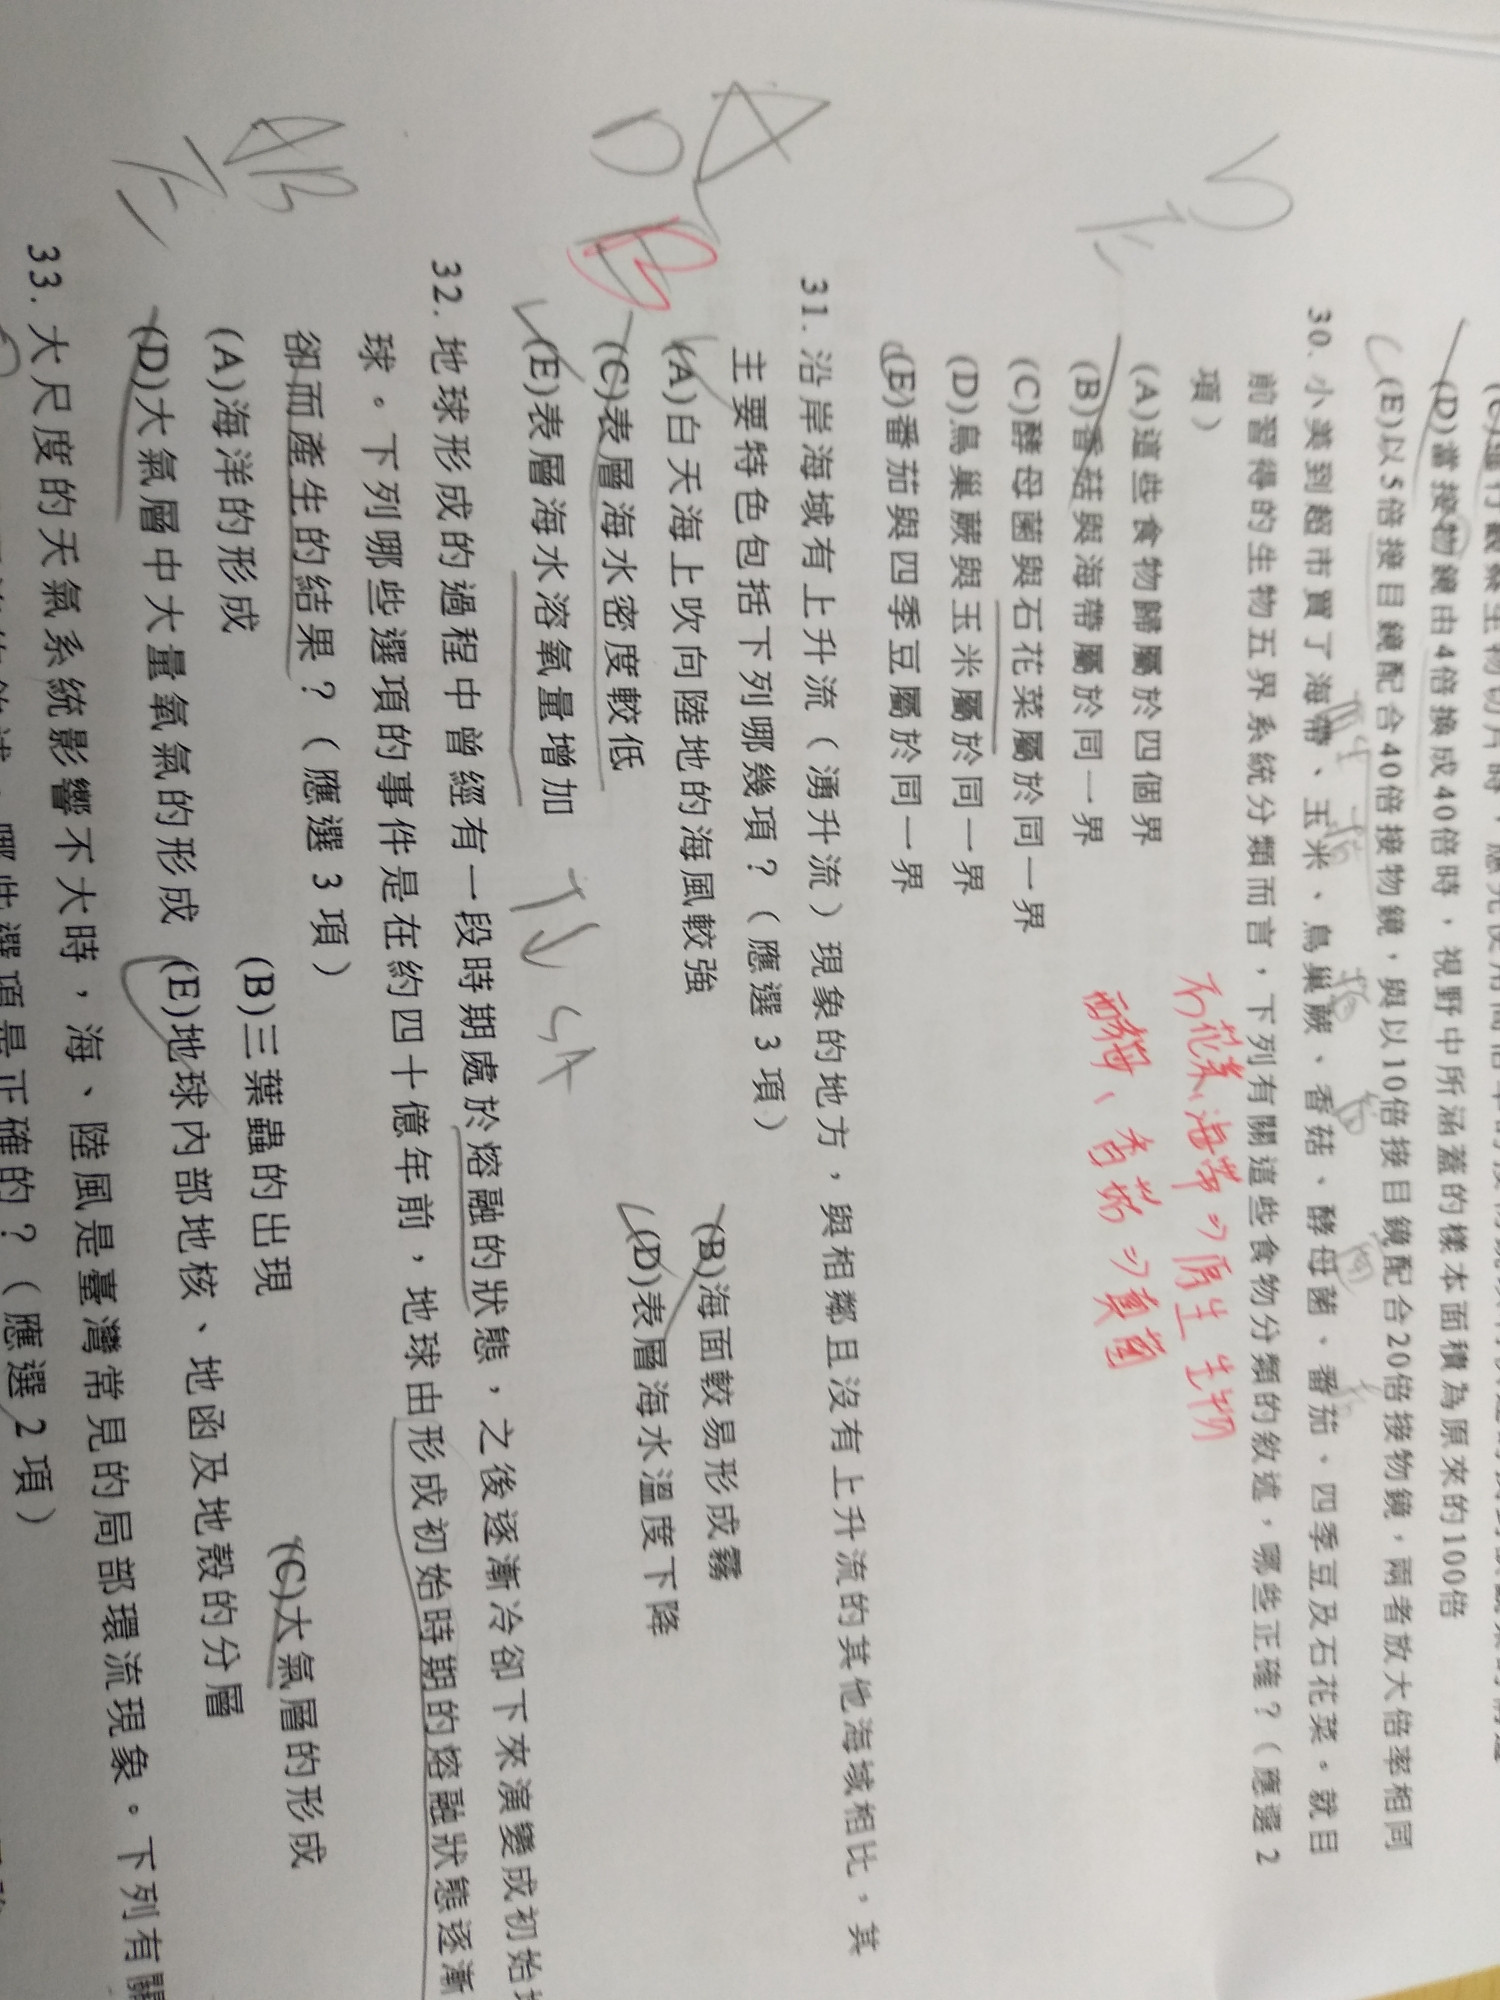 (D)當接物鏡由4倍換成40倍時，視野中所涵蓋的樣本面積為原來的100倍
(E)以5倍接目鏡配合40倍接物鏡，與以10倍接目鏡配合20倍接物鏡，兩者放大倍率相同
30. 小美到超市買了海帶、玉米、鳥巢蕨、香菇、酵母菌、番茄、四季豆及石花菜。就目
前習得的生物五界系統分類而言，下列有關這些食物分類的敘述，哪些正確？（應選2
項）
石花菜、海帶⇒原生生物
酵母、香菇⇒真菌
(A)這些食物歸屬於四個界
(B)香菇與海帶屬於同一界
(C)酵母菌與石花菜屬於同一界
(D)鳥巢蕨與玉米屬於同一界
(E)番茄與四季豆屬於同一界
31. 沿岸海域有上升流（湧升流）現象的地方，與相鄰且沒有上升流的其他海域相比，其
主要特色包括下列哪幾項？（應選3項）
(A)白天海上吹向陸地的海風較強
(B)海面較易形成霧
(C)表層海水密度較低
(D)表層海水溫度下降
(E)表層海水溶氧量增加
32. 地球形成的過程中曾經有一段時期處於熔融的狀態，之後逐漸冷卻下來演變成初始
球。下列哪些選項的事件是在約四十億年前，地球由形成初始時期的熔融狀態逐漸
卻而產生的結果？（應選3項）
(A)海洋的形成
(B)三葉蟲的出現
(C)大氣層的形成
(D)大氣層中大量氧氣的形成
(E)地球內部地核、地函及地殼的分層
33. 大尺度的天氣系統影響不大時，海、陸風是臺灣常見的局部環流現象。下列有關
選項是正確的？（應選2項）